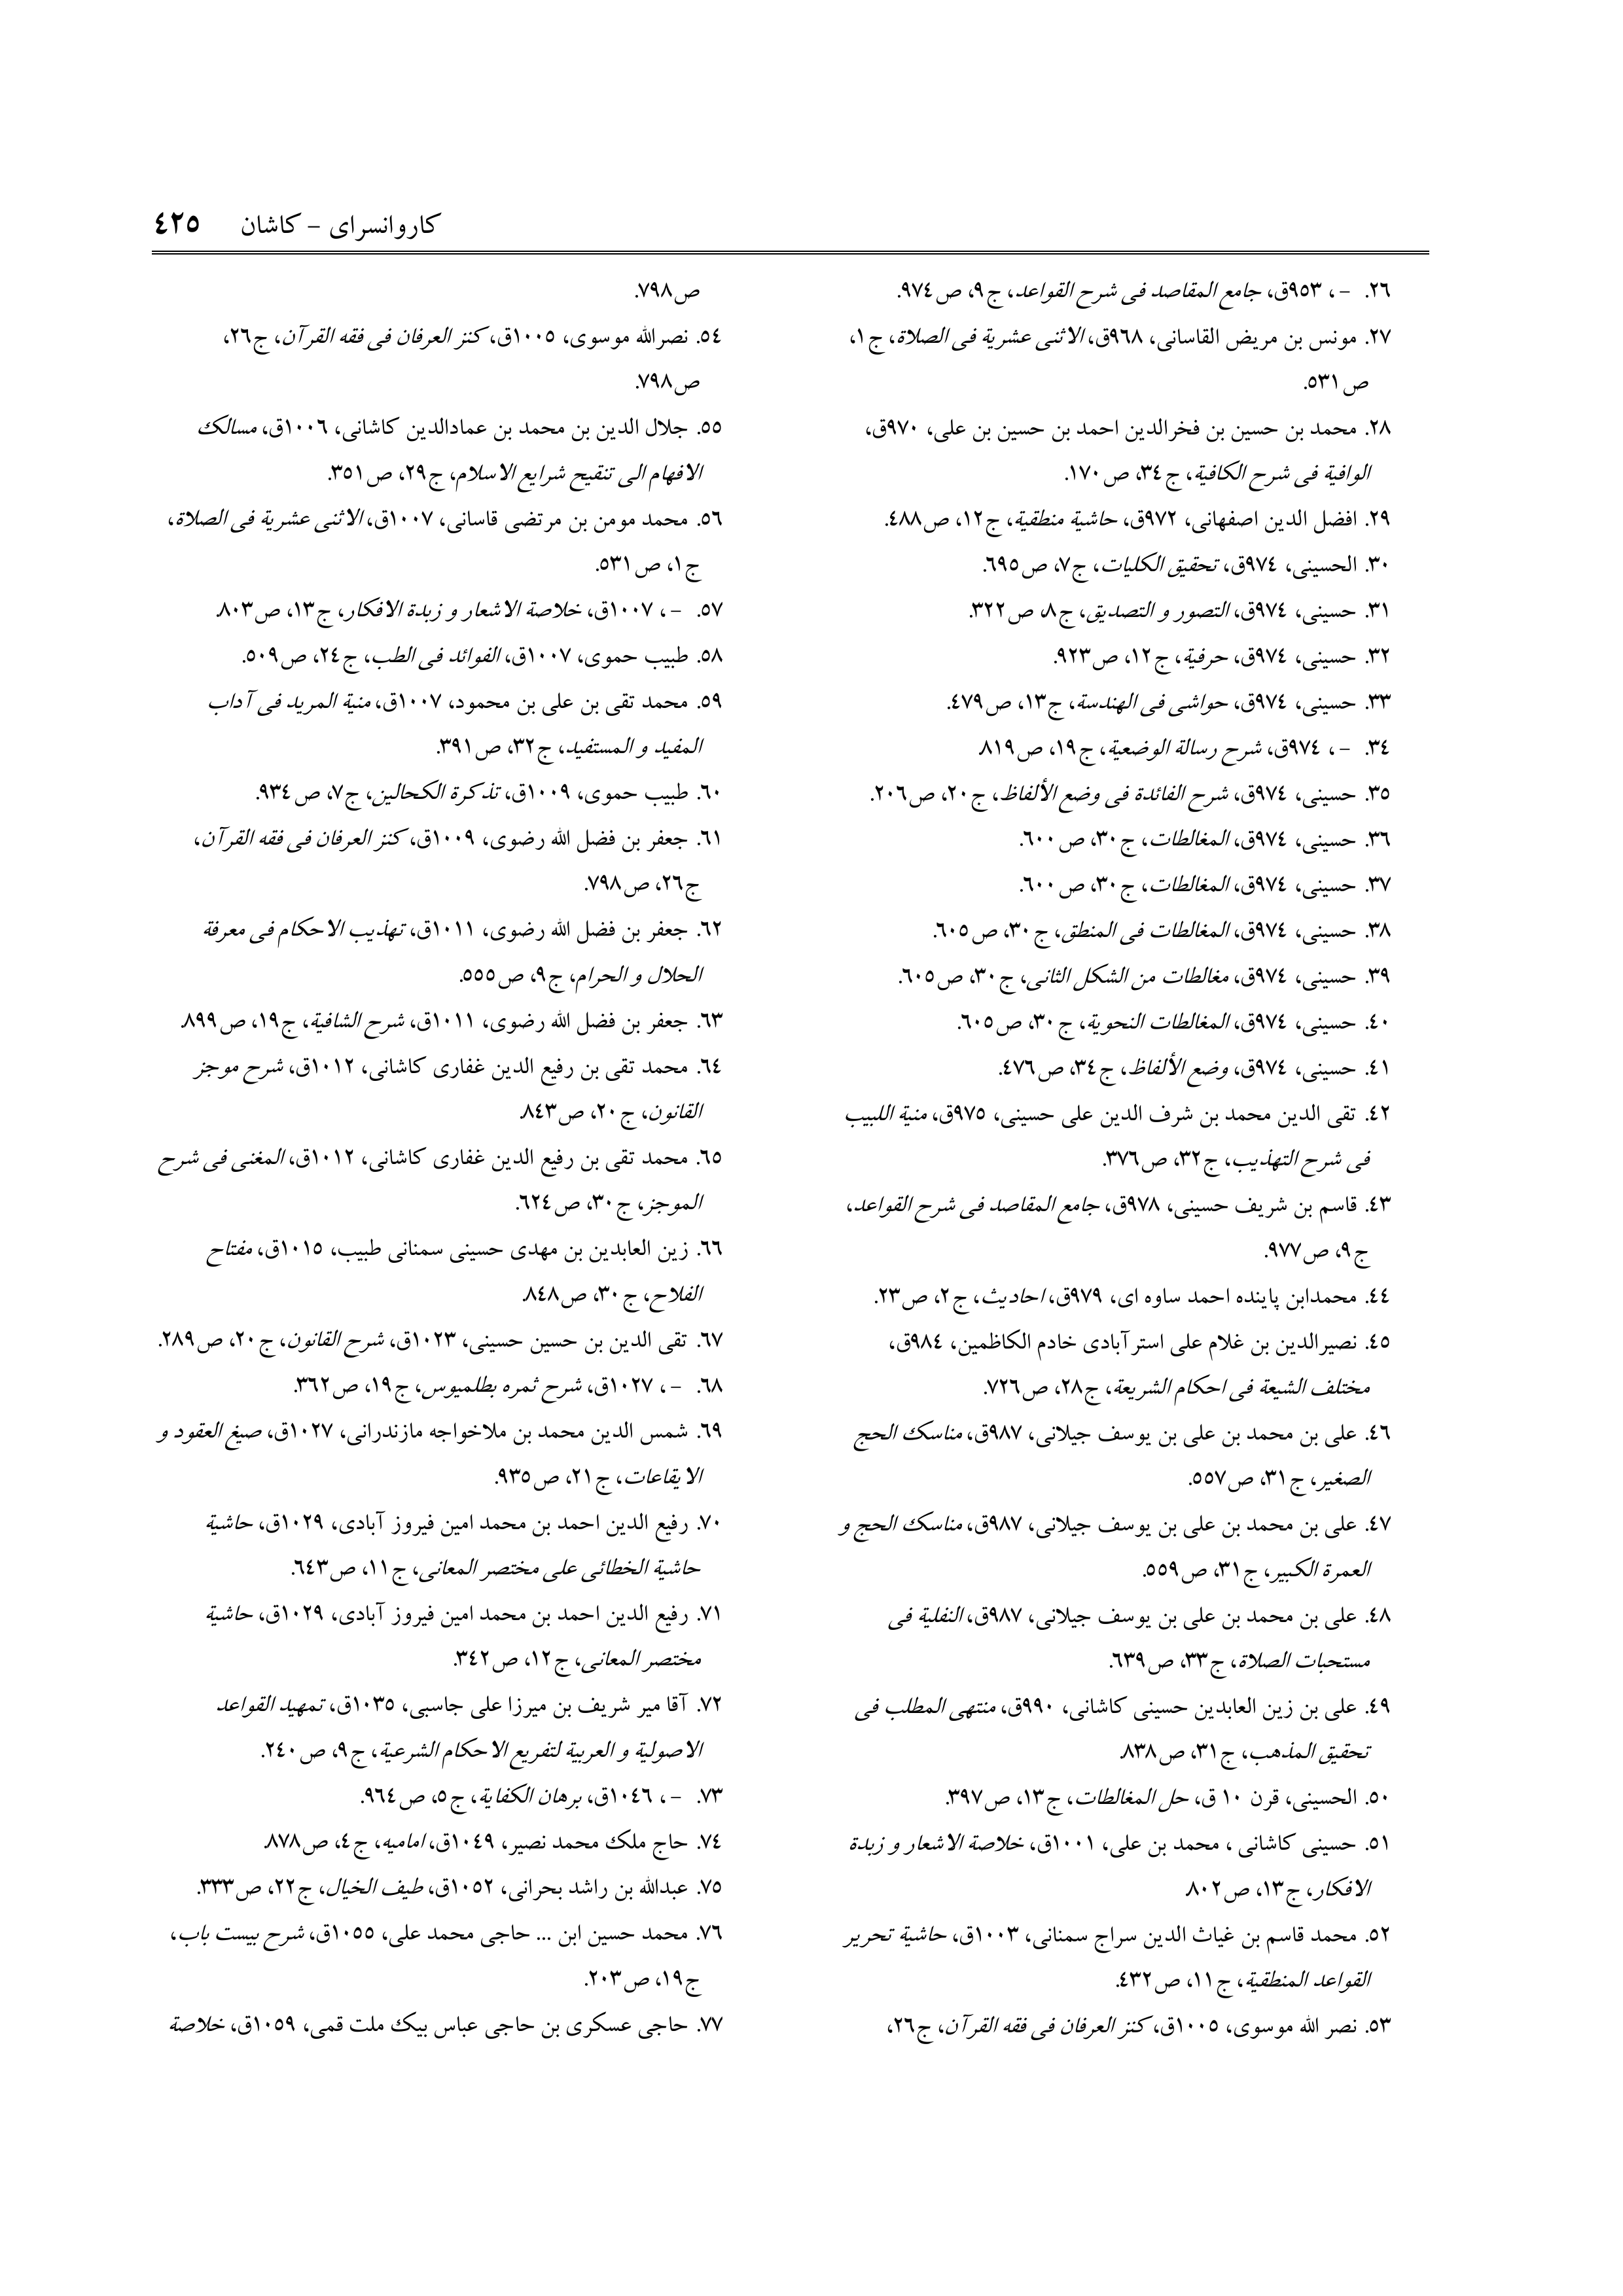 کاروانسرای – کاشان ٤٢٥
٢٦. –، ٩٥٣ق، جامع المقاصد فی شرح القواعد، ج٩، ص٩٧٤.
٢٧. مونس بن مریض القاسانی، ٩٦٨ق، الاثنی عشریة فی الصلاة، ج١،
ص٥٣١.
٢٨. محمد بن حسین بن فخرالدین احمد بن حسین بن علی، ٩٧٠ق،
الوافیة فی شرح الکافیة، ج٣٤، ص١٧٠.
٢٩. افضل الدین اصفهانی، ٩٧٢ق، حاشیة منطقیة، ج١٢، ص٤٨٨.
٣٠. الحسینی، ٩٧٤ق، تحقیق الکلیات، ج٧، ص٦٩٥.
٣١. حسینی، ٩٧٤ق، التصور و التصدیق، ج٨، ص٣٢٢.
٣٢. حسینی، ٩٧٤ق، حرفیة، ج١٢، ص٩٢٣.
٣٣. حسینی، ٩٧٤ق، حواشی فی الهندسة، ج١٣، ص٤٧٩.
٣٤. –، ٩٧٤ق، شرح رسالة الوضعیة، ج١٩، ص٨١٩.
٣٥. حسینی، ٩٧٤ق، شرح الفائدة فی وضع الألفاظ، ج٢٠، ص٢٠٦.
٣٦. حسینی، ٩٧٤ق، المغالطات، ج٣٠، ص٦٠٠.
٣٧. حسینی، ٩٧٤ق، المغالطات، ج٣٠، ص٦٠٠.
٣٨. حسینی، ٩٧٤ق، المغالطات فی المنطق، ج٣٠، ص٦٠٥.
٣٩. حسینی، ٩٧٤ق، مغالطات من الشکل الثانی، ج٣٠، ص٦٠٥.
٤٠. حسینی، ٩٧٤ق، المغالطات النحویة، ج٣٠، ص٦٠٥.
٤١. حسینی، ٩٧٤ق، وضع الألفاظ، ج٣٤، ص٤٧٦.
٤٢. تقی الدین محمد بن شرف الدین علی حسینی، ٩٧٥ق، منیة اللبیب
فی شرح التهذیب، ج٣٢، ص٣٧٦.
٤٣. قاسم بن شریف حسینی، ٩٧٨ق، جامع المقاصد فی شرح القواعد،
ج٩، ص٩٧٧.
٤٤. محمدابن پاینده احمد ساوه ای، ٩٧٩ق، احادیث، ج٢، ص٢٣.
٤٥. نصیرالدین بن غلام علی استرآبادی خادم الکاظمین، ٩٨٤ق،
مختلف الشیعة فی احکام الشریعة، ج٢٨، ص٧٢٦.
٤٦. علی بن محمد بن علی بن یوسف جیلانی، ٩٨٧ق، مناسک الحج
الصغیر، ج٣١، ص٥٥٧.
٤٧. علی بن محمد بن علی بن یوسف جیلانی، ٩٨٧ق، مناسک الحج و
العمرة الکبیر، ج٣١، ص٥٥٩.
٤٨. علی بن محمد بن علی بن یوسف جیلانی، ٩٨٧ق، النفلیة فی
مستحبات الصلاة، ج٣٣، ص٦٣٩.
٤٩. علی بن زین العابدین حسینی کاشانی، ٩٩٠ق، منتهی المطلب فی
تحقیق المذهب، ج٣١، ص٨٣٨.
٥٠. الحسینی، قرن ١٠ ق، حل المغالطات، ج١٣، ص٣٩٧.
٥١. حسینی کاشانی ، محمد بن علی، ١٠٠١ق، خلاصة الاشعار و زبدة
الافکار، ج١٣، ص٨٠٢.
٥٢. محمد قاسم بن غیاث الدین سراج سمنانی، ١٠٠٣ق، حاشیة تحریر
القواعد المنطقیة، ج١١، ص٤٣٢.
٥٣. نصر الله موسوی، ١٠٠٥ق، کنز العرفان فی فقه القرآن، ج٢٦،
ص٧٩٨.
٥٤. نصرالله موسوی، ١٠٠٥ق، کنز العرفان فی فقه القرآن، ج٢٦،
ص٧٩٨.
٥٥. جلال الدین بن محمد بن عمادالدین کاشانی، ١٠٠٦ق، مسالک
الافهام الی تنقیح شرایع الاسلام، ج٢٩، ص٣٥١.
٥٦. محمد مومن بن مرتضی قاسانی، ١٠٠٧ق، الاثنی عشریة فی الصلاة،
ج١، ص٥٣١.
٥٧. –، ١٠٠٧ق، خلاصة الاشعار و زبدة الافکار، ج١٣، ص٨٠٣.
٥٨. طبیب حموی، ١٠٠٧ق، الفوائد فی الطب، ج٢٤، ص٥٠٩.
٥٩. محمد تقی بن علی بن محمود، ١٠٠٧ق، منیة المرید فی آداب
المفید و المستفید، ج٣٢، ص٣٩١.
٦٠. طبیب حموی، ١٠٠٩ق، تذکرة الکحالین، ج٧، ص٩٣٤.
٦١. جعفر بن فضل الله رضوی، ١٠٠٩ق، کنز العرفان فی فقه القرآن،
ج٢٦، ص٧٩٨.
٦٢. جعفر بن فضل الله رضوی، ١٠١١ق، تهذیب الاحکام فی معرفة
الحلال و الحرام، ج٩، ص٥٥٥.
٦٣. جعفر بن فضل الله رضوی، ١٠١١ق، شرح الشافیة، ج١٩، ص٨٩٩.
٦٤. محمد تقی بن رفیع الدین غفاری کاشانی، ١٠١٢ق، شرح موجز
القانون، ج٢٠، ص٨٤٣.
٦٥. محمد تقی بن رفیع الدین غفاری کاشانی، ١٠١٢ق، المغنی فی شرح
الموجز، ج٣٠، ص٦٢٤.
٦٦. زین العابدین بن مهدی حسینی سمنانی طبیب، ١٠١٥ق، مفتاح
الفلاح، ج٣٠، ص٨٤٨.
٦٧. تقی الدین بن حسین حسینی، ١٠٢٣ق، شرح القانون، ج٢٠، ص٢٨٩.
٦٨. –، ١٠٢٧ق، شرح ثمره بطلمیوس، ج١٩، ص٣٦٢.
٦٩. شمس الدین محمد بن ملاخواجه مازندرانی، ١٠٢٧ق، صیغ العقود و
الایقاعات، ج٢١، ص٩٣٥.
٧٠. رفیع الدین احمد بن محمد امین فیروز آبادی، ١٠٢٩ق، حاشیة
حاشیة الخطائی علی مختصر المعانی، ج١١، ص٦٤٣.
٧١. رفیع الدین احمد بن محمد امین فیروز آبادی، ١٠٢٩ق، حاشیة
مختصر المعانی، ج١٢، ص٣٤٢.
٧٢. آقا میر شریف بن میرزا علی جاسبی، ١٠٣٥ق، تمهید القواعد
الاصولیة و العربیة لتفریع الاحکام الشرعیة، ج٩، ص٢٤٠.
٧٣. –، ١٠٤٦ق، برهان الکفایة، ج٥، ص٩٦٤.
٧٤. حاج ملک محمد نصیر، ١٠٤٩ق، امامیه، ج٤، ص٨٧٨.
٧٥. عبدالله بن راشد بحرانی، ١٠٥٢ق، طیف الخیال، ج٢٢، ص٣٣٣.
٧٦. محمد حسین ابن ... حاجی محمد علی، ١٠٥٥ق، شرح بیست باب،
ج١٩، ص٢٠٣.
٧٧. حاجی عسکری بن حاجی عباس بیک ملت قمی، ١٠٥٩ق، خلاصة